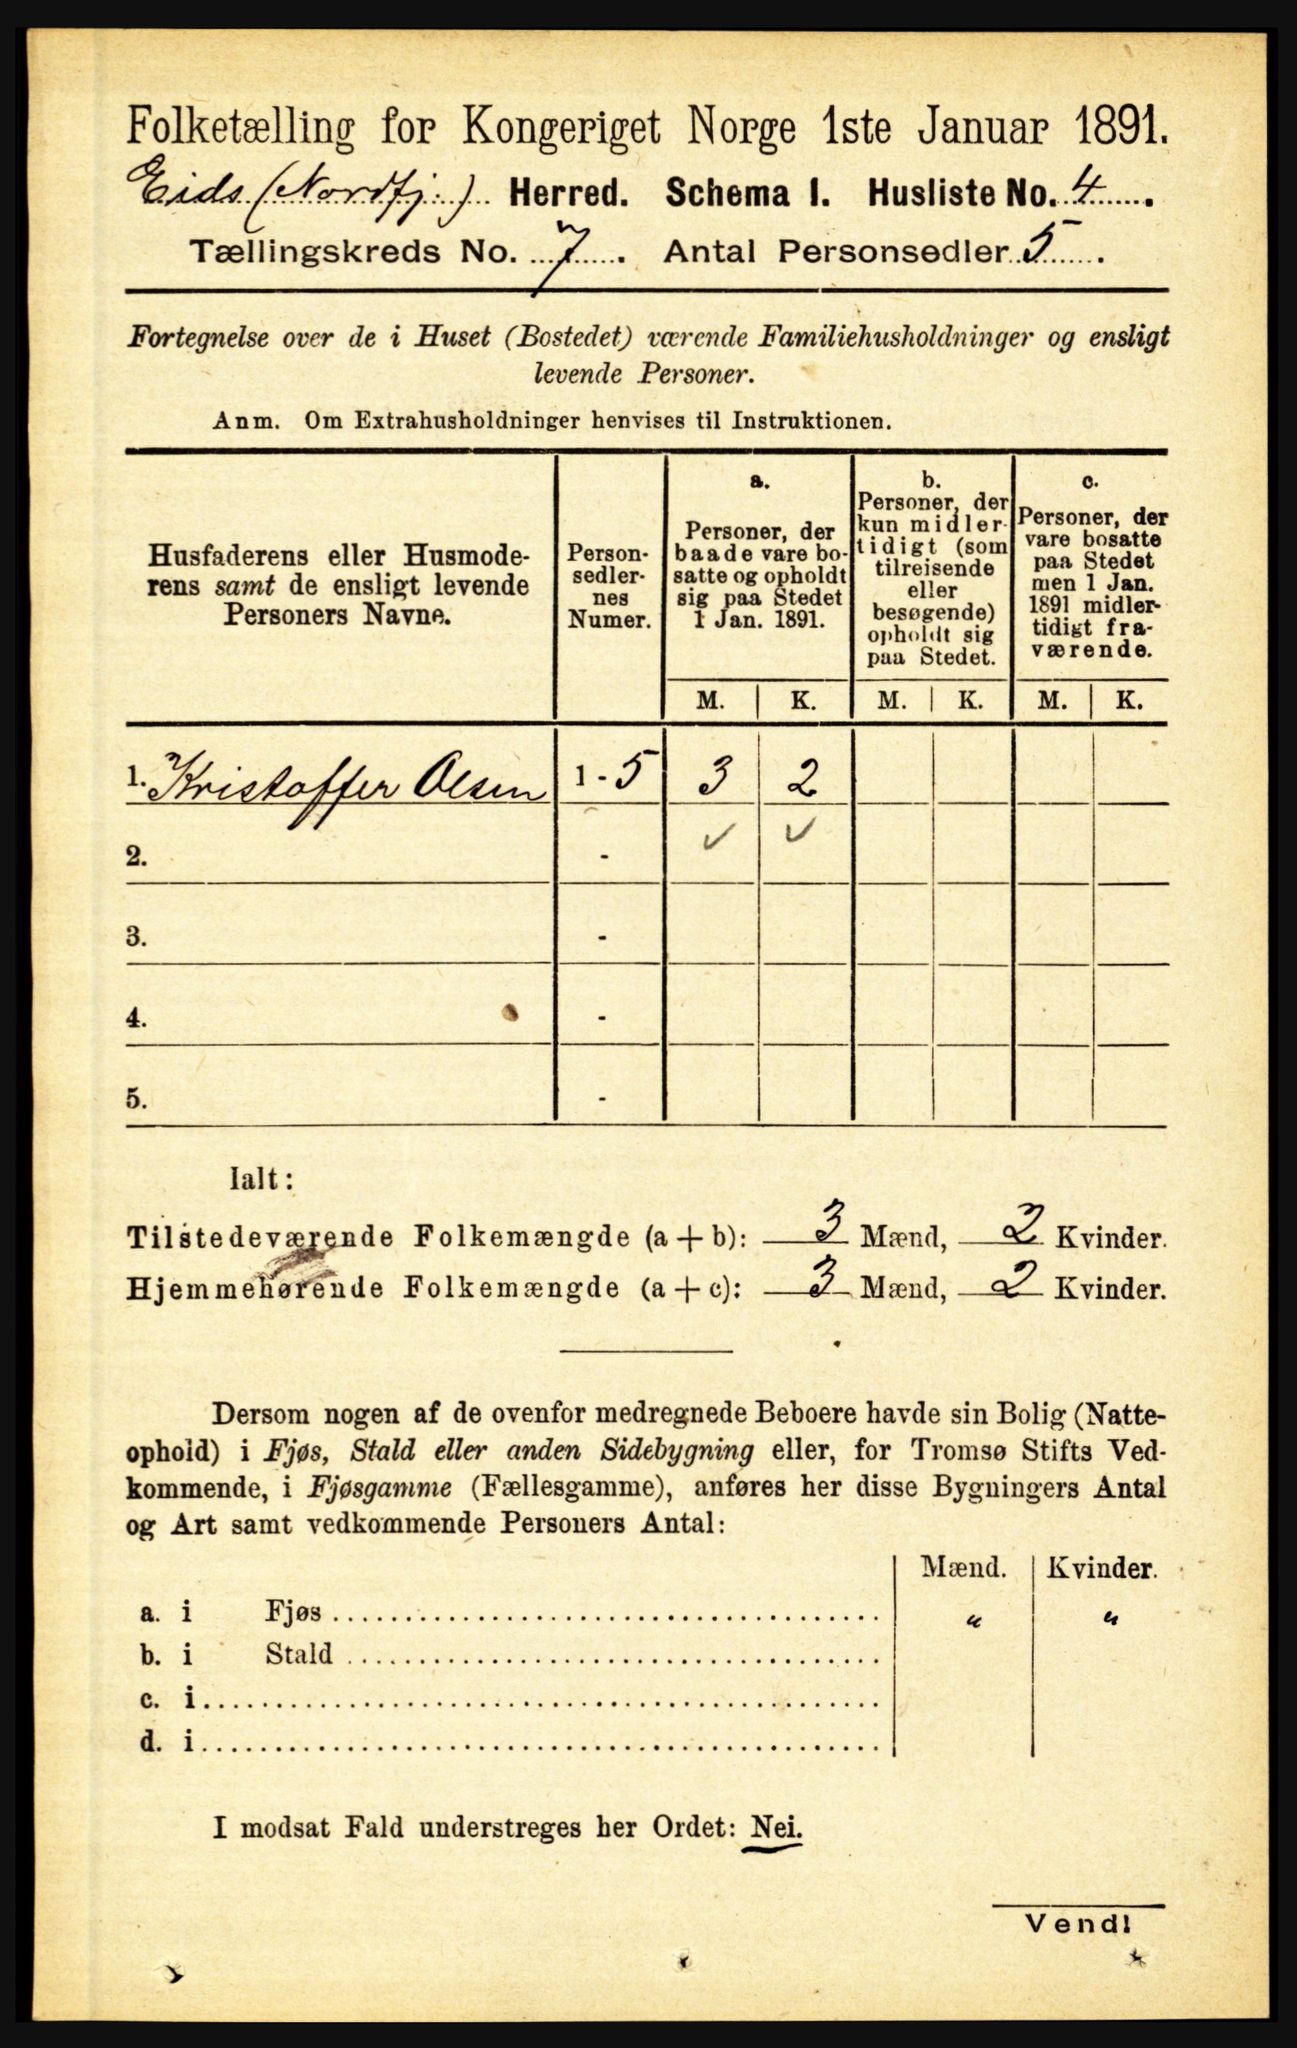 Folketælling for Kongeriget Norge 1ste Januar 1891.
Eids (Nordfj.) Herred. Schema I. Husliste No. 4.
Tællingskreds No. 7. Antal Personsedler 5.
Fortegnelse over de i Huset (Bostedet) værende Familiehusholdninger og ensligt
levende Personer.
Anm. Om Extrahusholdninger henvises til Instruktionen.
Husfaderens eller Husmode-
rens samt de ensligt levende
Personers Navne.
Person-
sedler-
nes
Numer.
a.
Personer, der
baade vare bo-
satte og opholdt
sig paa Stedet
1 Jan. 1891.
b.
Personer, der
kun midler-
tidigt (som
tilreisende
eller
besøgende)
opholdt sig
paa Stedet.
c.
Personer, der
vare bosatte
paa Stedet
men 1 Jan.
1891 midler-
tidigt fra-
værende.
M. K. M. K. M. K.
1. Kristoffer Olsen 1 - 5 3 2
2. - ✓ ✓
3. -
4. -
5. -
Ialt:
Tilstedeværende Folkemængde (a + b): 3 Mænd, 2 Kvinder.
Hjemmehørende Folkemængde (a + c): 3 Mænd, 2 Kvinder.
Dersom nogen af de ovenfor medregnede Beboere havde sin Bolig (Natte-
ophold) i Fjøs, Stald eller anden Sidebygning eller, for Tromsø Stifts Ved-
kommende, i Fjøsgamme (Fællesgamme), anføres her disse Bygningers Antal
og Art samt vedkommende Personers Antal:
Mænd. Kvinder.
a. i Fjøs " "
b. i Stald
c. i
d. i
I modsat Fald understreges her Ordet: Nei.
Vend!